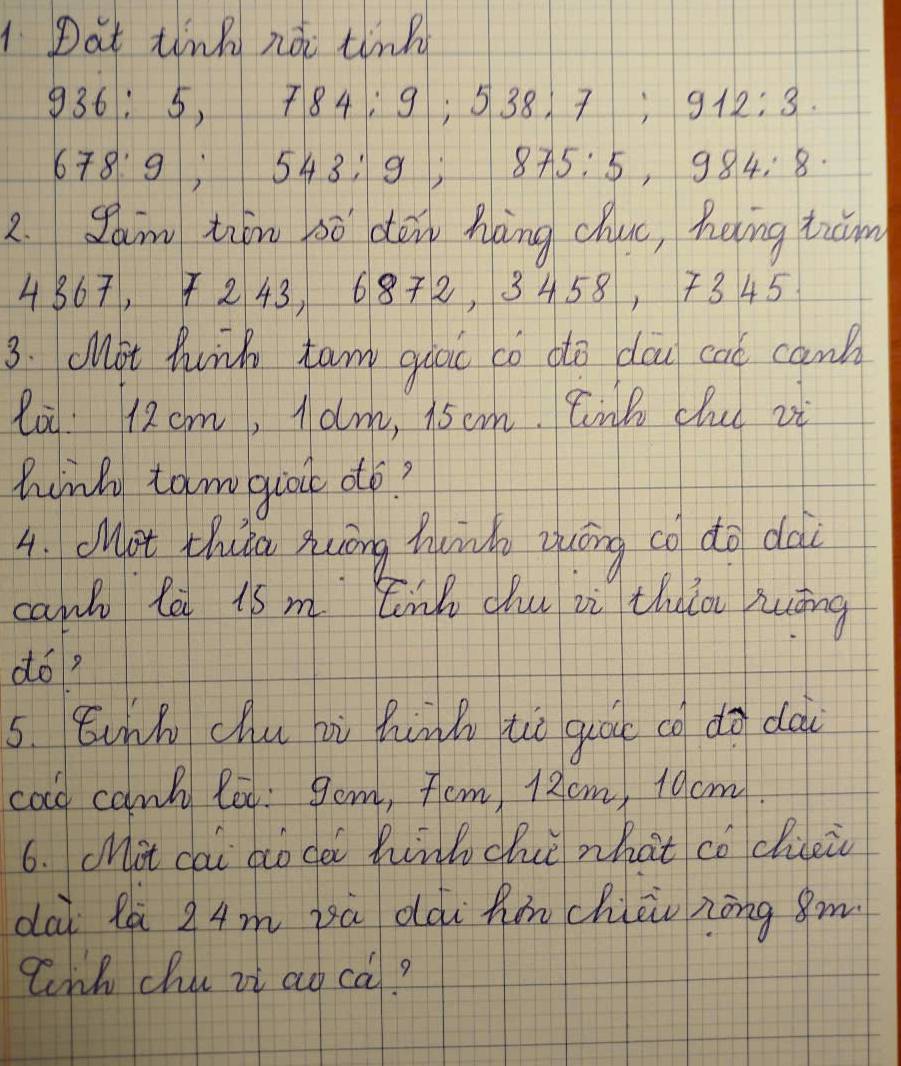 1. Đặt tính rồi tính
936 : 5, 784 : 9 ; 538 : 7 ; 912 : 3.
678 : 9 ; 543 : 9 ; 875 : 5, 984 : 8.
2. Làm tròn số đến hàng chục, hàng trăm
4367, 7243, 6872, 3458, 7345.
3. Một hình tam giác có độ dài các cạnh
là: 12 cm, 1 dm, 15 cm. Tính chu vi
hình tam giác đó?
4. Một thửa ruộng hình vuông có độ dài
cạnh là 15 m. Tính chu vi thửa ruộng
đó?
5. Tính chu vi hình tứ giác có độ dài
các cạnh là: 9cm, 7cm, 12cm, 10cm.
6. Một cái ao cá hình chữ nhật có chiều
dài là 24m và dài hơn chiều rộng 8m.
Tính chu vi ao cá?